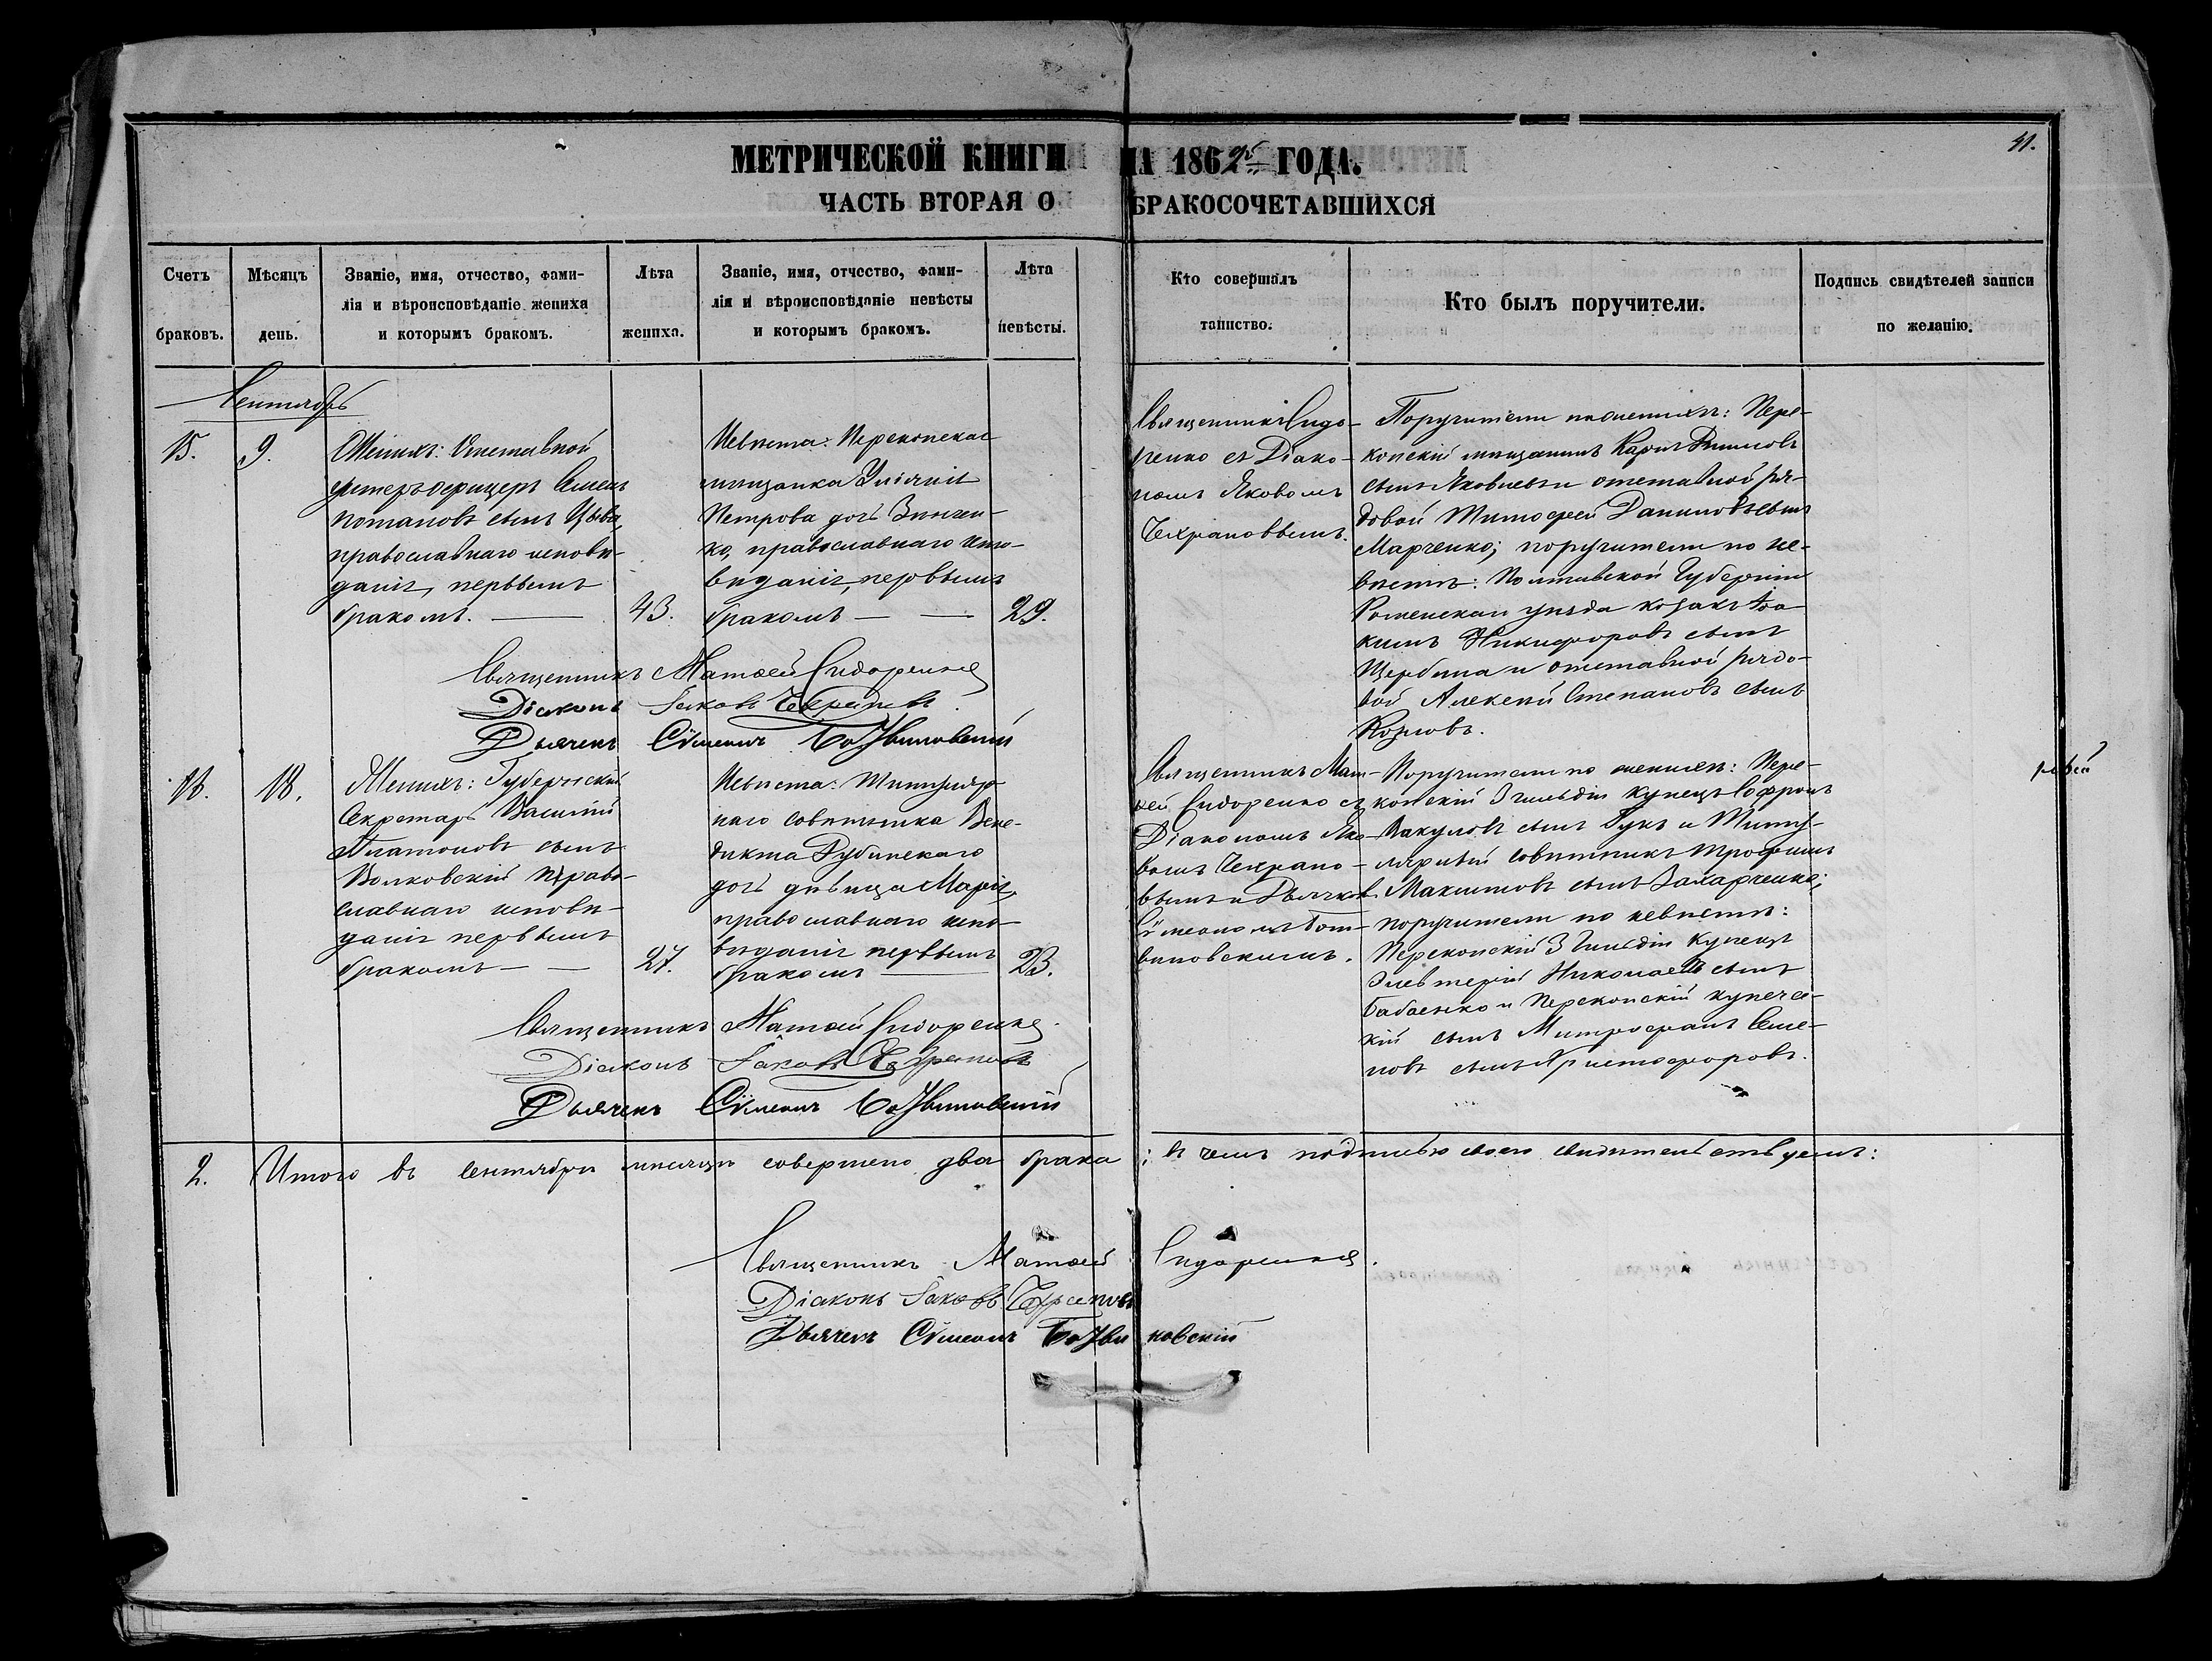 41.
МЕТРИЧЕСКОЙ КНИГИ НА 1862й ГОДА.
ЧАСТЬ ВТОРАЯ О БРАКОСОЧЕТАВШИХСЯ
Счетъ
браковъ.
Мѣсяцъ
день.
Званіе, имя, отчество, фами-
лія и вѣроисповѣданіе жениха
и которымъ бракомъ.
Лѣта
жениха.
Званіе, имя, отчество, фами-
лія и вѣроисповѣданіе невѣсты
и которымъ бракомъ.
Лѣта
невѣсты.
Кто совершалъ
таинство.
Кто былъ поручители.
Подпись свидѣтелей записи
по желанію.
Сентябрь
15.
9.
Женихъ: Отставной
унтеръ офицеръ Семенъ
Потаповъ сынъ Цыба,
православнаго исповѣ-
данія, первымъ
бракомъ.
43.
Невѣста: Перекопская
мѣщанка Уліанія
Петрова дочь Зинчен-
ко, православнаго испо-
вѣданія, первымъ
бракомъ
29.
Священникъ Сидо-
ренко съ Діако-
номъ Яковомъ
Чехрановымъ.
Поручители по женихѣ: Пере-
копскій мѣщанинъ Карпъ
сынъ Яковлевъ и отставной ря-
довой Тимофей Даниловъ сынъ
Марченко; поручители по не-
вѣстѣ: Полтавской Губерніи
Роменскаго уѣзда козакъ Іоа-
кимъ Никифоровъ сынъ
Щербина и отставной рядо-
вой Алексѣй Степановъ сынъ
Козловъ.
Священникъ Матѳей Сидоренко
Діаконъ Іаковъ Чехрановъ
Дьячекъ Сѵмеонъ Ботвиновскій
16.
18.
Женихъ: Губернскій
Секретарь Василій
Платоновъ сынъ
Волковскій право-
славнаго исповѣ-
данія первымъ
бракомъ
27.
Невѣста: Титуляр-
наго совѣтника Вене-
дикта Рубинскаго
дочь дѣвица Марія,
православнаго испо-
вѣданія первымъ
бракомъ
23.
Священникъ Мат-
ѳей Сидоренко съ
Діакономъ Яко-
вомъ Чехрано-
вымъ и Дьячком.
Сѵмеономъ Бот-
виновскимъ.
Поручители по женихѣ: Пере-
копскій 3 гильдіи купецъ Софронъ
Вакуловъ сынъ Гукъ и Титу-
лярный совѣтникъ Трофимъ
Максимовъ сынъ Захарченко;
поручители по невѣстѣ:
Перекопскій 3 Гильдіи Купецъ
Элевтерій Николаевъ сынъ
Бабаенко и Перекопскій купечес-
кій сынъ Митрофанъ Семе-
новъ сынъ Христофоровъ.
Священникъ Матѳей Сидоренко.
Діаконъ Іаковъ Чехрановъ
Дьячекъ Сѵмеонъ Ботвиновскій
2. Итого въ сентябрѣ мѣсяцѣ совершено два брака; въ чемъ подписью своею свидѣтельствуемъ:
Священникъ Матѳей Сидоренко.
Діаконъ Іаковъ Чехрановъ
Дьячекъ Сѵмеонъ Ботвиновскій